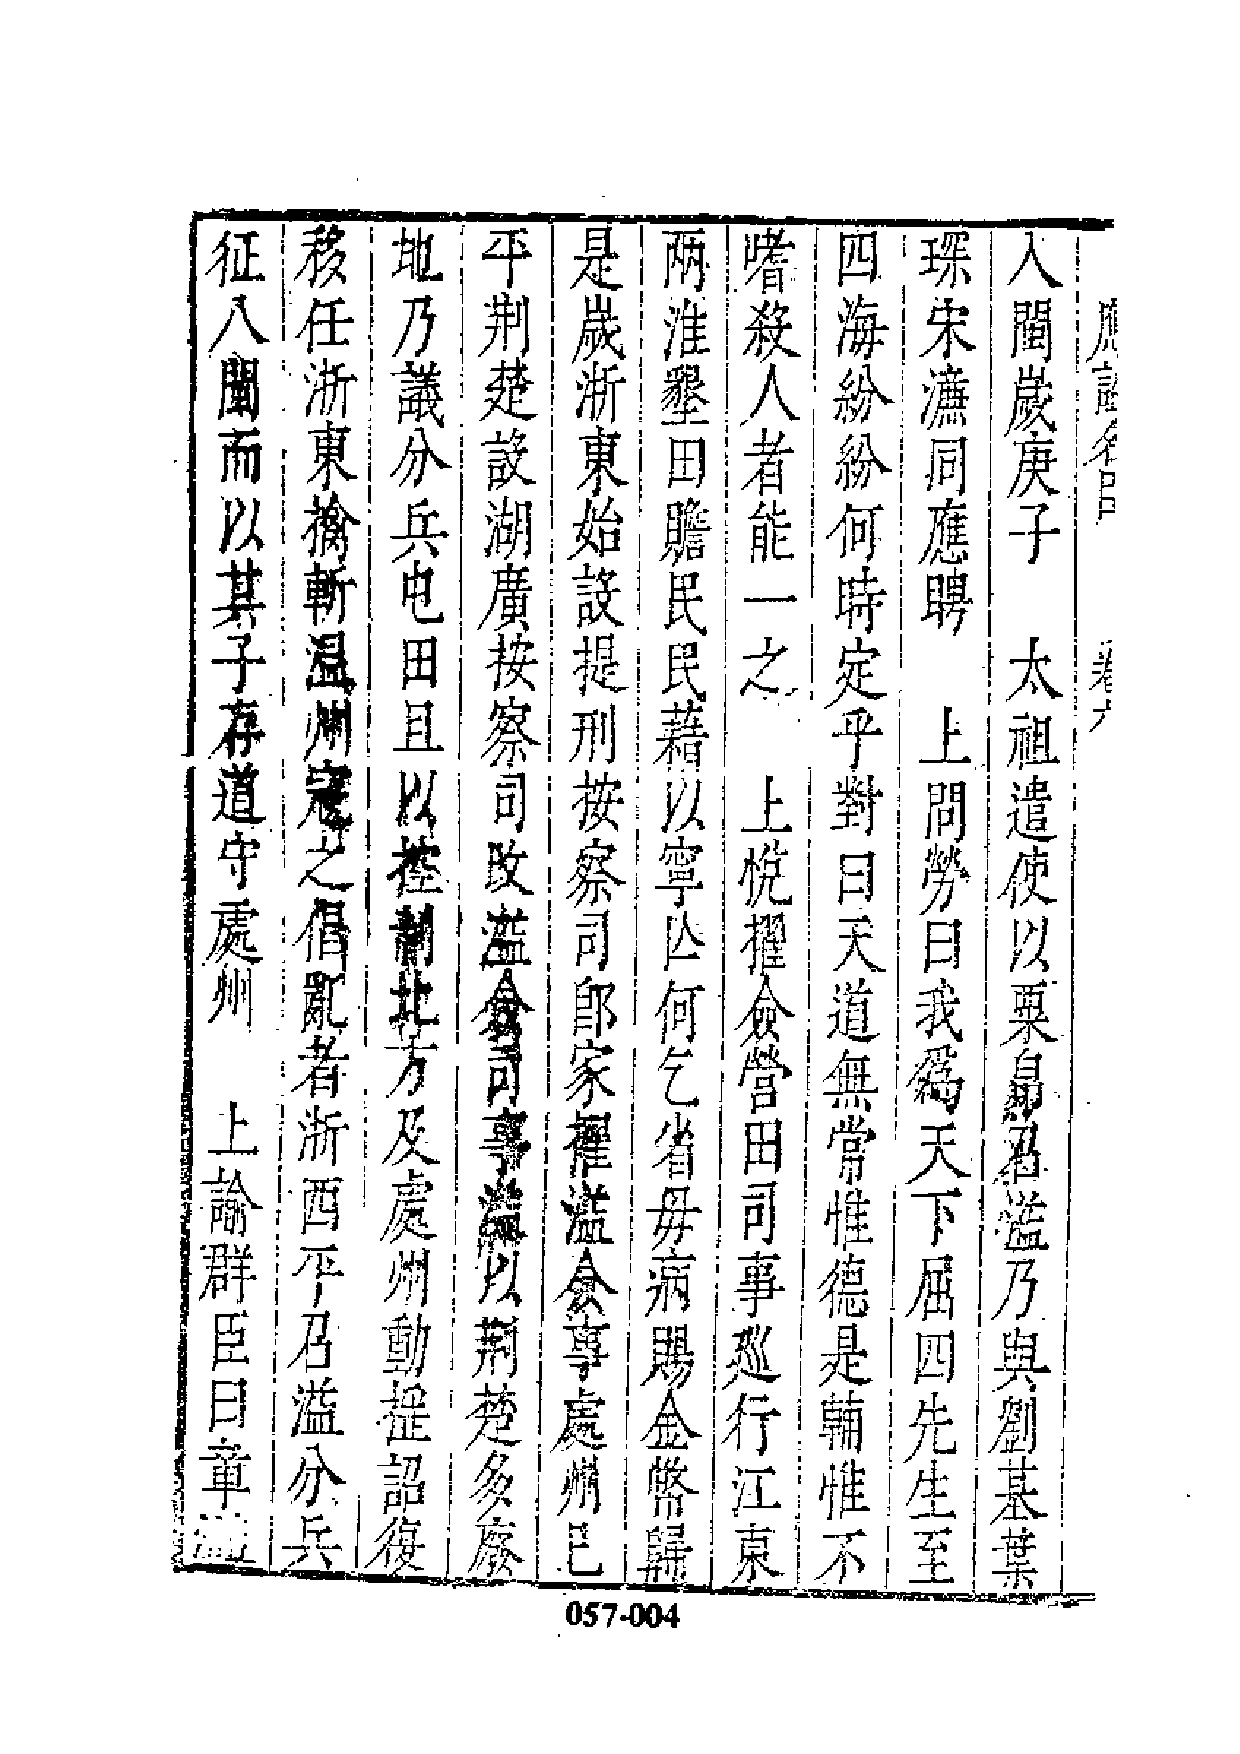 應諡名臣 卷六
入閩歲庚子 太祖遣使以束帛召溢乃與劉基葉
琛宋濂同應聘 上問勞曰我爲天下屈四先生至
四海紛紛何時定乎對曰天道無常惟德是輔惟不
嗜殺人者能一之 上悅擢僉營田司事巡行江東
兩淮墾田贍民民藉以寧 何乞省母病賜金幣歸
是歲浙東始設提刑按察司卽家擢溢僉事處州已
平荆楚設湖廣按察司改溢僉司事溢以荆楚多廢
地乃議分兵屯田且以控制北方及處州動搖詔復
移任浙東擒斬溫州寇之倡亂者浙西平召溢分兵
征入閩而以其子存道守處州 上諭群臣曰章溢
057-004